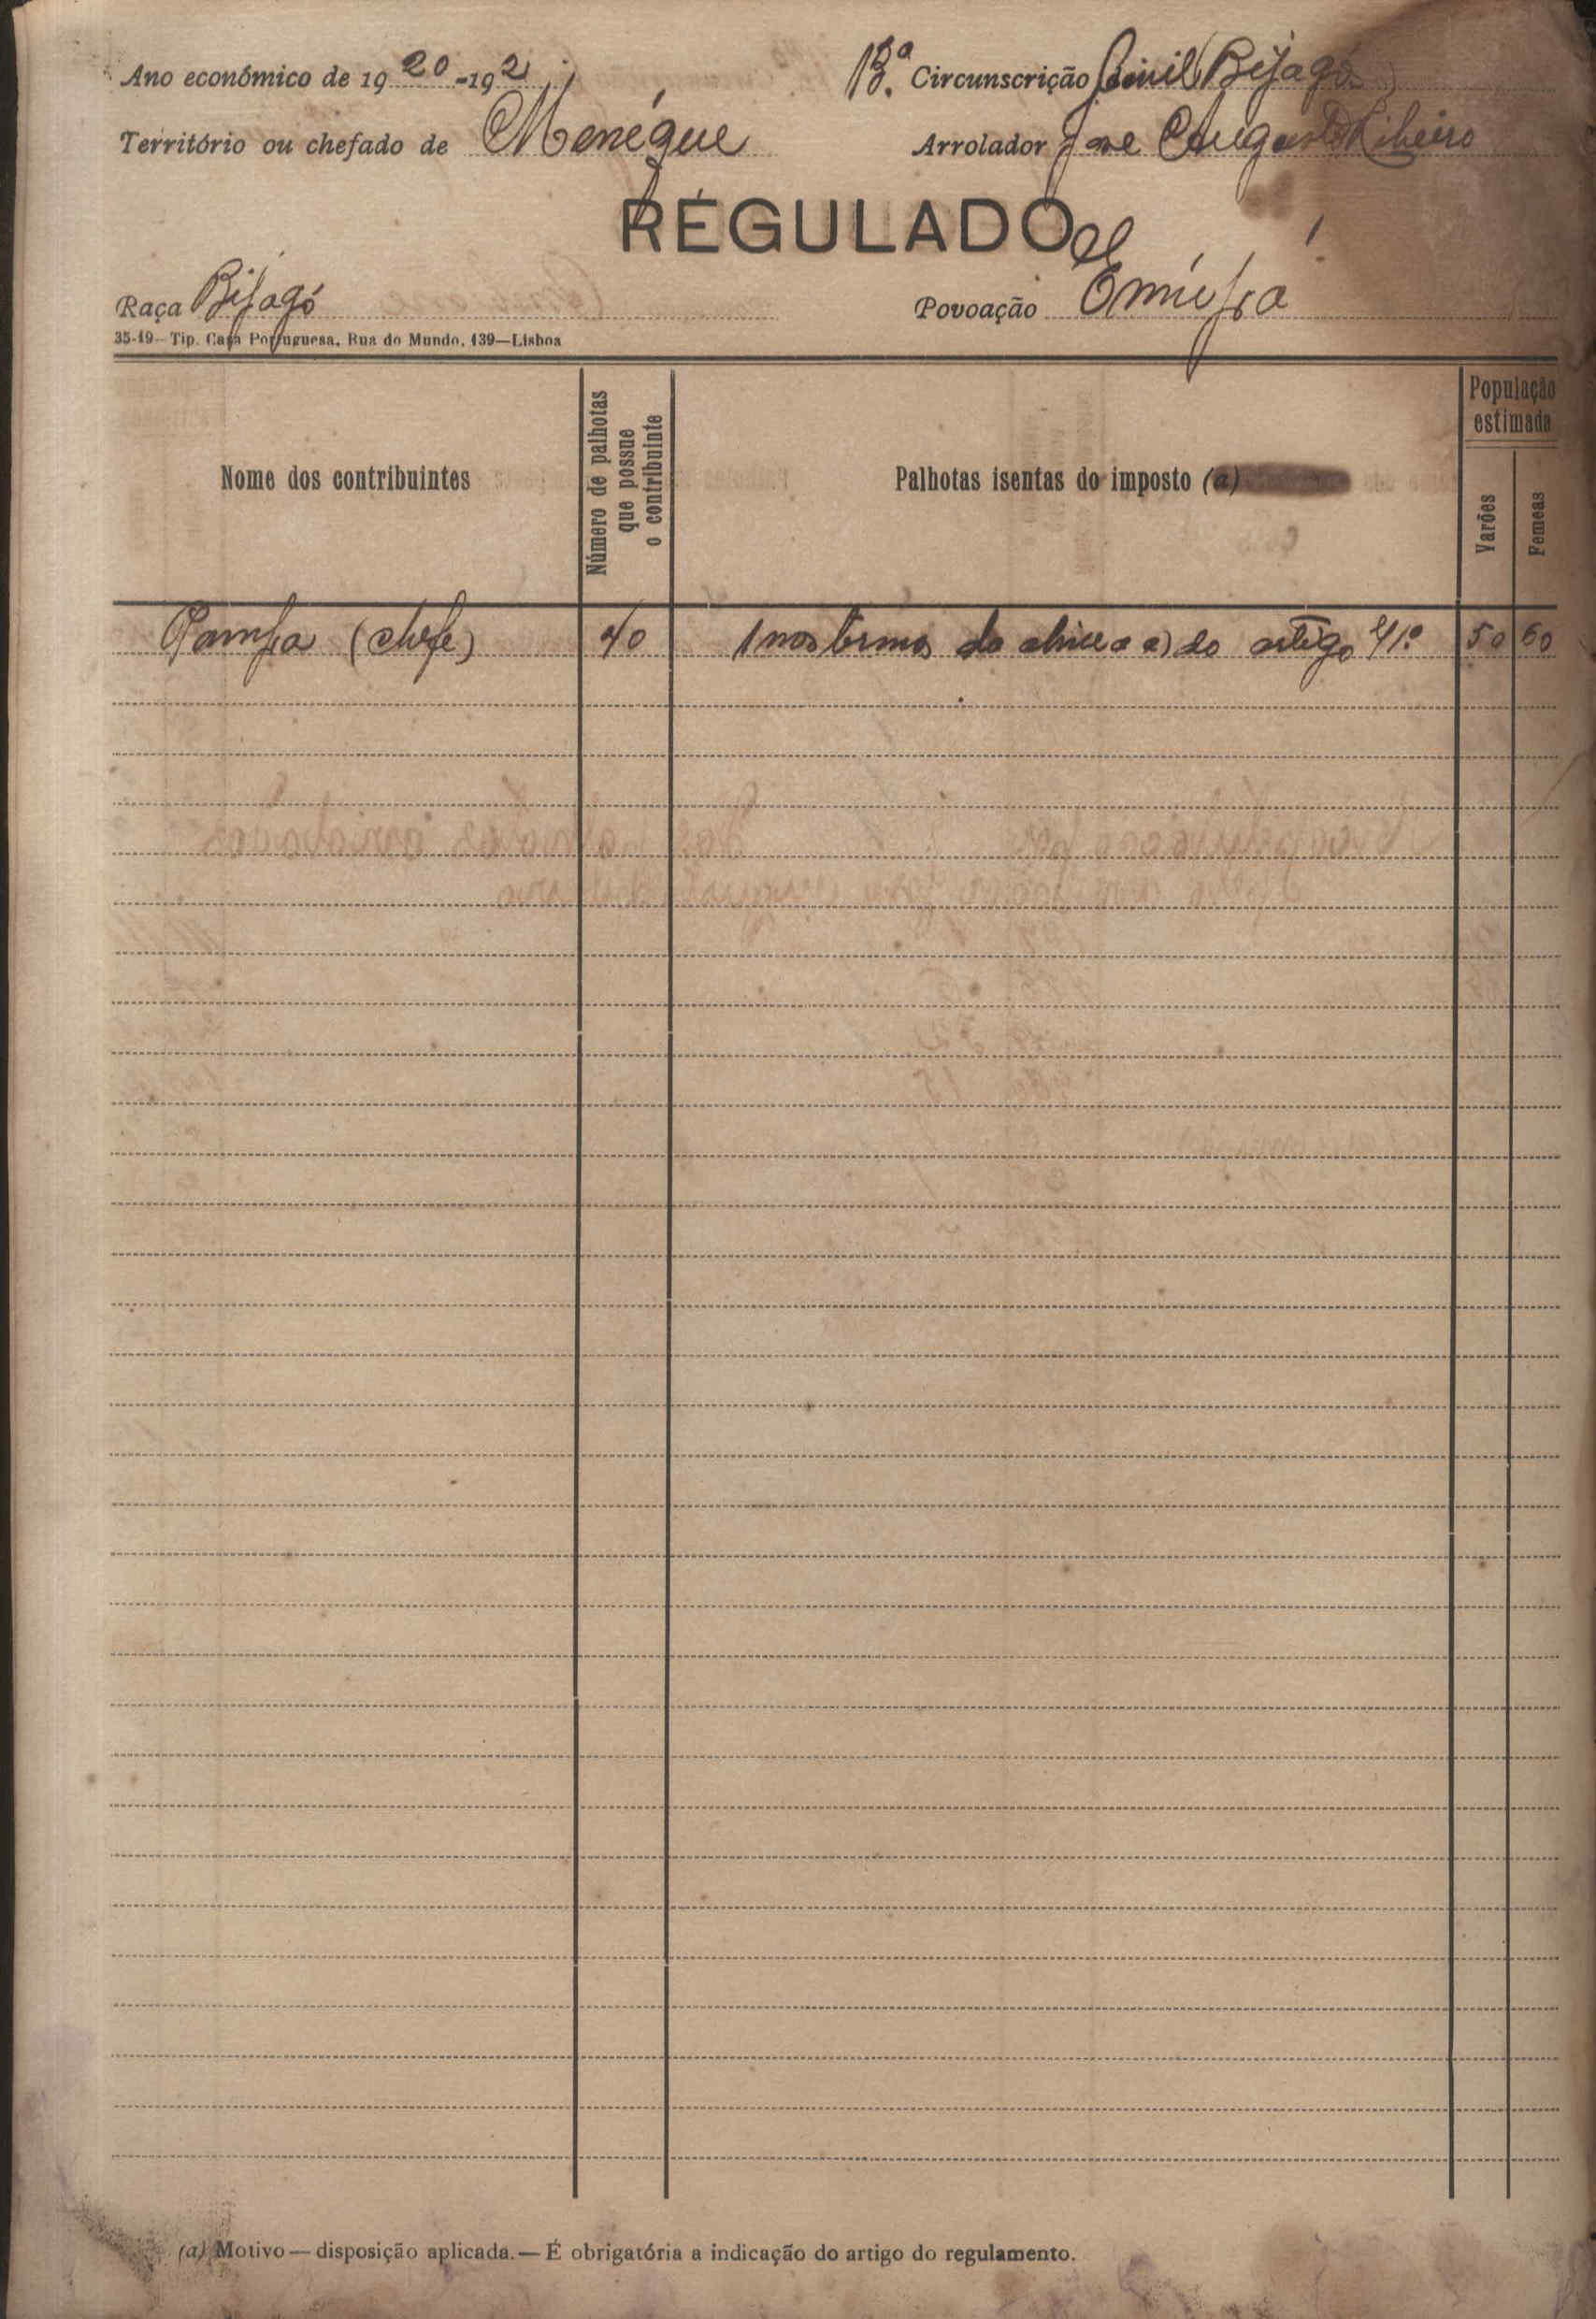 Ano económico de 1920-1921
13.ª Circunscrição Civil Bijagó
Território ou chefado de Menégue
Arrolador José Augusto Ribeiro
REGULADO
Raça Bijagó
Povoação
35-19—Tip. Casa Portuguesa, Rua do Mundo, 139—Lisboa
Nome dos contribuintes
Número de palhotas que possue o contribuinte
Palhotas isentas do imposto (a)
População estimada
Varões
Femeas
(chefe) 40 1 nos termos da alinea a) do artigo 41º 50 60
(a) Motivo—disposição aplicada.—É obrigatória a indicação do artigo do regulamento.